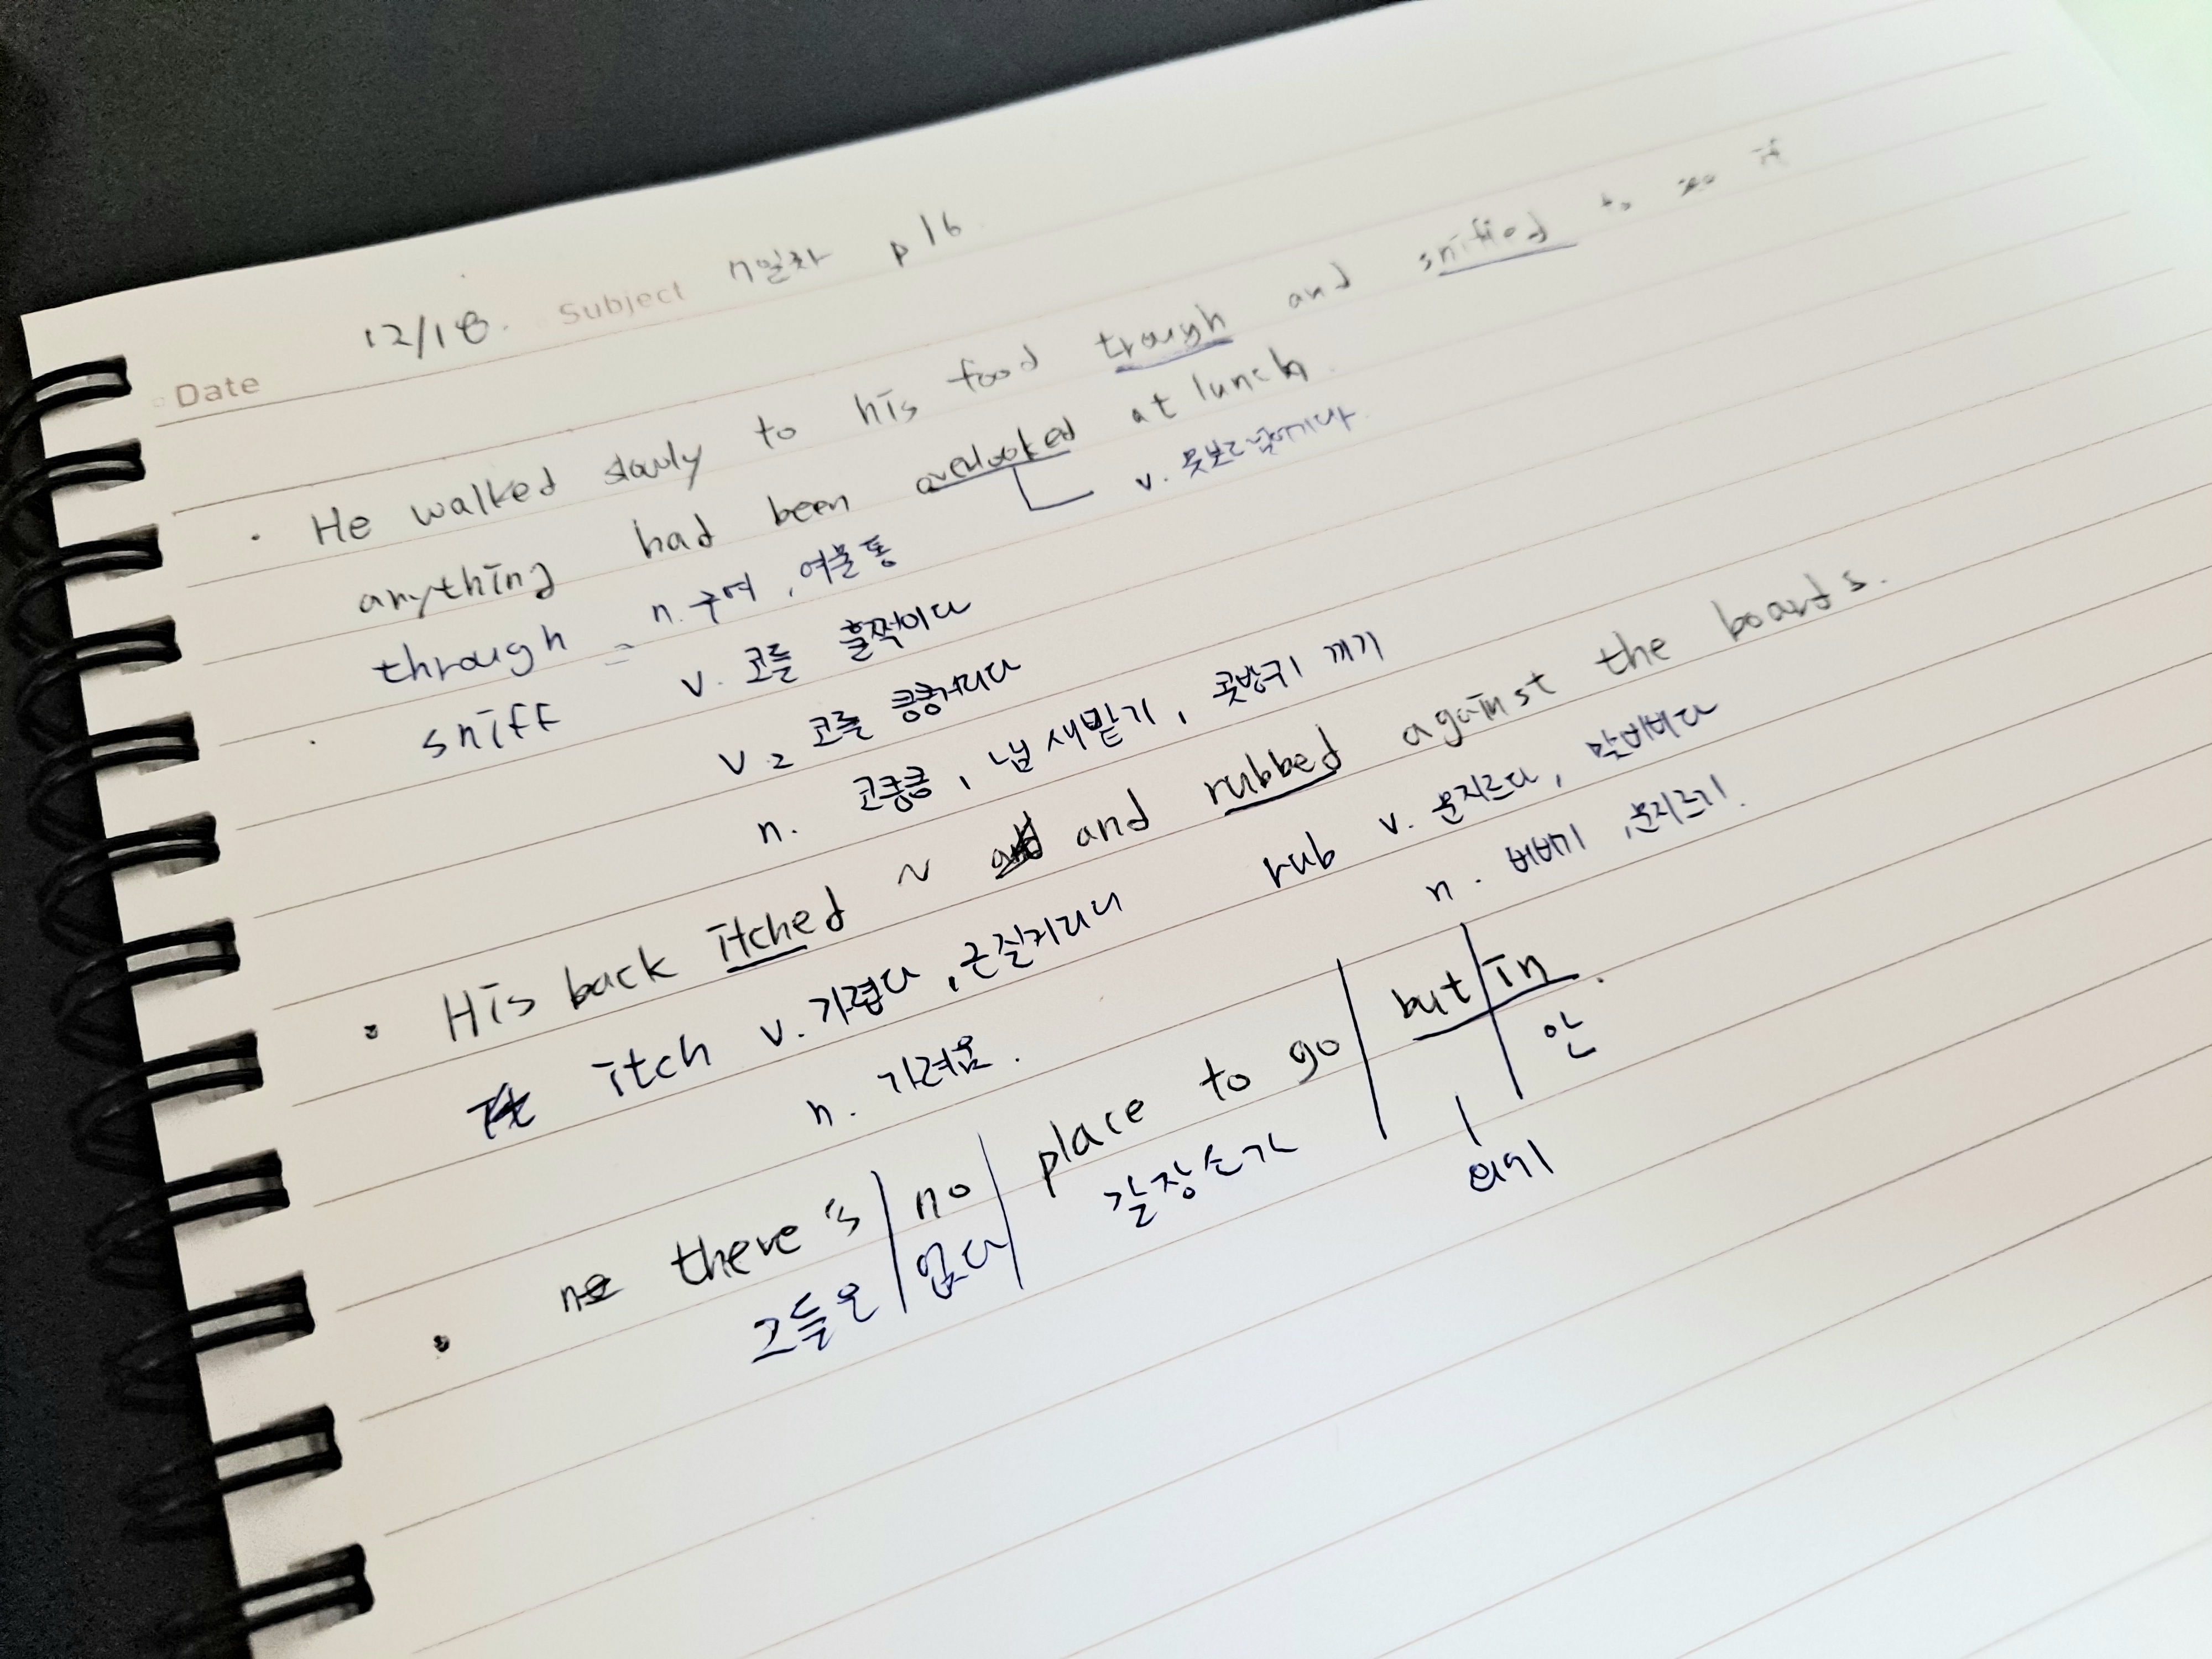 Date 12/18. Subject 7일차 p16.
· He walked slowly to his food trough and sniffed to see if
anything had been overlooked at lunch.
v. 못보고 넘어가다.
through = n. 구여, 여물통
· sniff v. 코를 훌쩍이다
v2 코를 킁킁거리다
n. 코킁킁, 냄새맡기, 콧방귀 끼기
· His back itched ~ and and rubbed against the boards.
itch v. 가렵다, 근질거리다 rub v. 문지르다, 맞비비다
n. 가려움. n. 비비기, 문지르기.
· there's | no | place to go | but | in.
그들은 | 없다 | 갈장소가 | 안